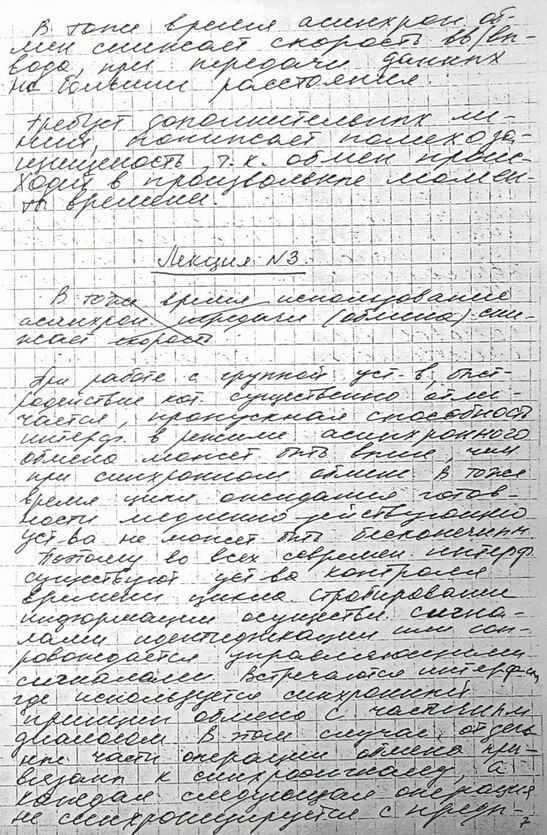 В тоже время асинхрон об-
мен снижает скорость вв/вы-
вода при передачи данных
на большие расстояния
требует дополнительных ли-
ний, понижает помехоза-
щищеность, т.к. обмен проис-
ходит в произвольные момен-
ты времени.
Лекция N3
В тоже время использование
асинхрон передачи (обмена) сни-
жает скорость
При работе с группой уст-в, быст-
родействие кот. существенно отли-
чается, пропускная способность
интерф. в режиме асинхронного
обмена может быть выше, чем
при синхронном обмене. В тоже
время цикл ожидания готов-
ности медленно действующего
уст-ва не может быть бесконечным
Поэтому во всех современ. интерф.
существуют уст-ва контроля
времени цикла. Стробирование
информации осуществл. сигна-
лами идентификации или соп-
ровождается управляющими
сигналами. Встречаются интерф-сы
где используется синхронный
принцип обмена с частичным
диалогом. В этом случае, отдель
ные части операции обмена при-
вязаны к синхросигналу, а
каждая следующая операция
не синхронизируется с пред-
7